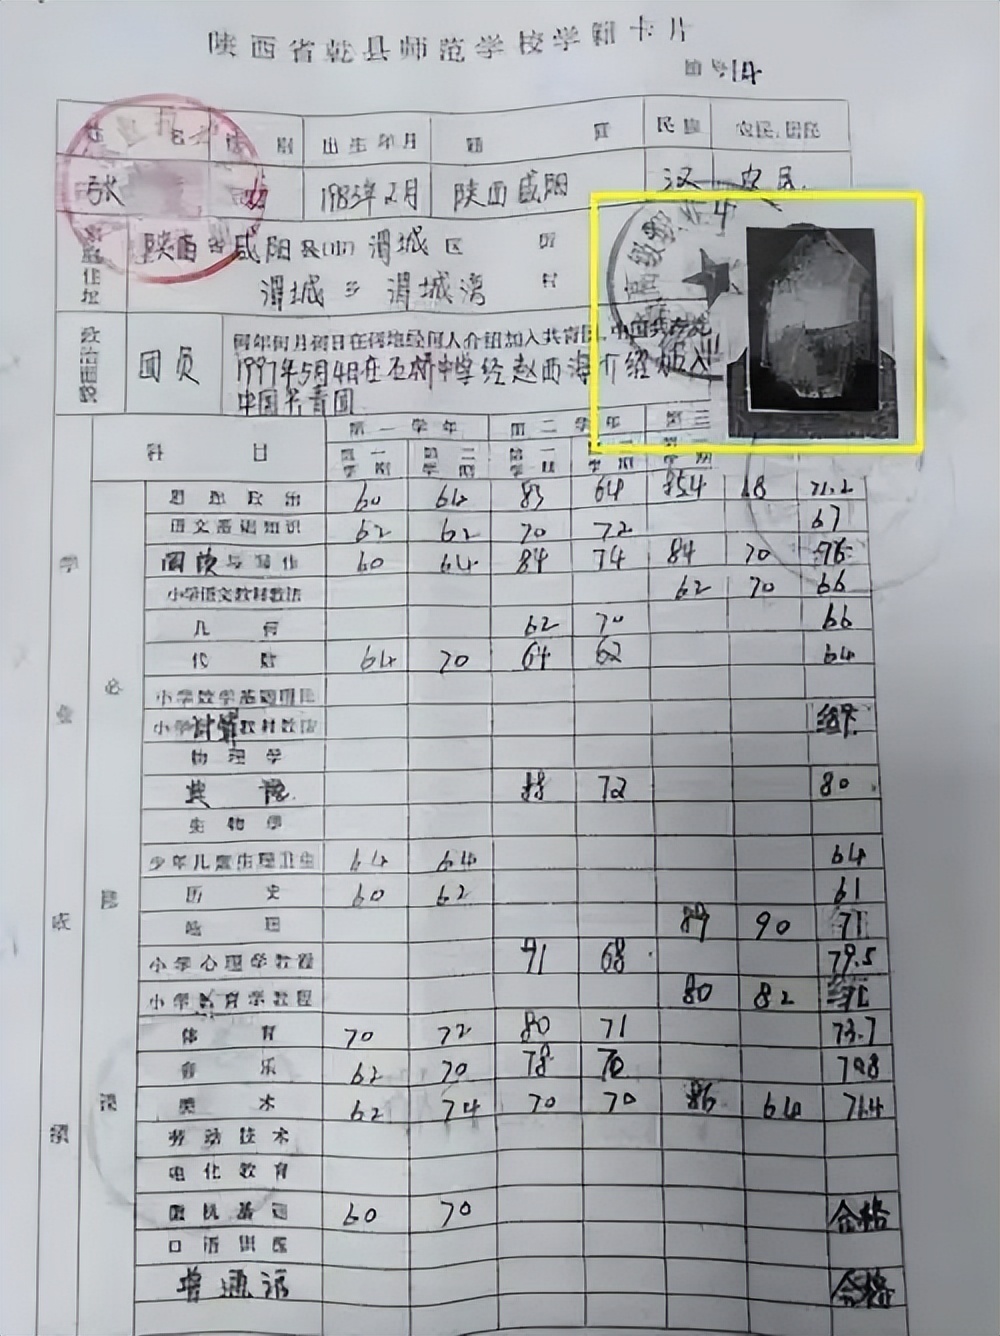 陕西省乾县师范学校学籍卡片
出生年月 民族 农民、居民
张 1983年2月 陕西咸阳 汉 农民
陕西省咸阳县(市)渭城区
渭城乡渭城湾村
政治面貌 团员 何年何月何日在何地经何人介绍加入共青团、中国共产党
1997年5月4日在石桥中学经赵西海介绍加入
中国共青团
科目 第一学年 第二学年 第三
第一学期 第二学期 第一学期
思想政治 60 64 83 64 85.4 68 71.2
语文基础知识 62 62 70 72 67
阅读与写作 60 64 84 74 84 70 76
小学语文教材教法 62 70 66
几何 62 70 66
代数 64 70 64 62 64
小学数学基础理论
小学计算教材教法
物理学
72 80
生物学
少年儿童生理卫生 64 64 64
历史 60 62 61
89 90 71
小学心理学教程 91 68 79.5
小学教育学教程 80 82
体育 70 72 80 71 73.7
音乐 62 70 78 70 70.8
美术 62 74 70 70 86 64 71.4
劳动技术
电化教育
微机基础 60 70 合格
口语训练
普通话 合格
学业成绩
必修课